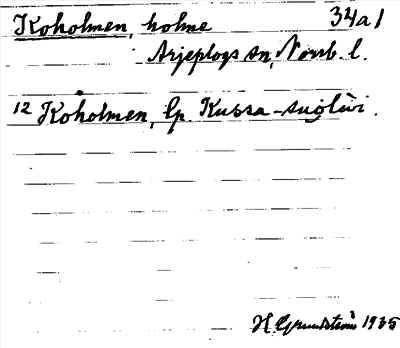 Koholmen, holme 34a1
Arjeplogs sn, Norrb. l.
12 Koholmen, lp. Kussa-suolui.
H. Grundström 1935